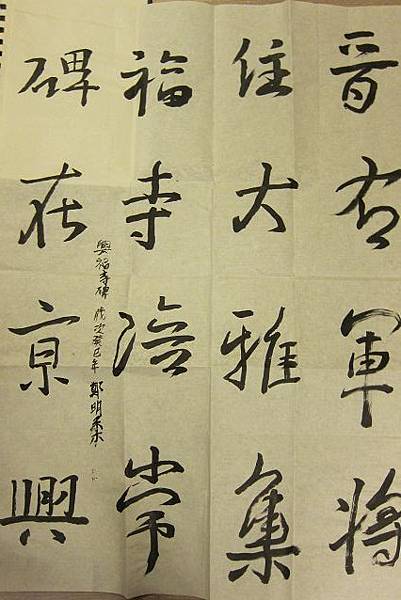 碑在京興
福寺陪常
住大雅集
晉右軍將
興福寺碑 歲次癸巳年 鄭明